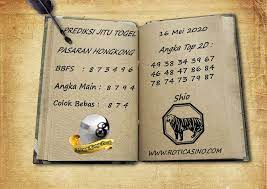 PREDIKSI JITU TOGEL
PASARAN HONGKONG
BBFS : 8 7 3 4 9 6
Angka Main : 8 7 9 4
Colok Bebas : 8 4
16 Mei 2020
Angka Top 2D :
49 38 34 39 67
46 43 48 37 86
78 74 73 79 87
Shio
WWW.ROTICASINO.COM